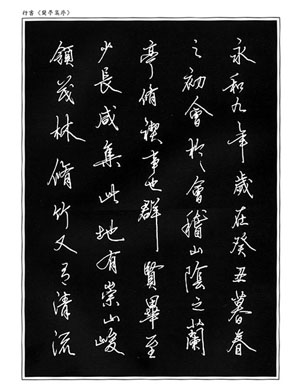 行書《蘭亭集序》
永和九年歲在癸丑暮春
之初會於會稽山陰之蘭
亭脩禊事也群賢畢至
少長咸集此地有崇山峻
領茂林脩竹又有清流